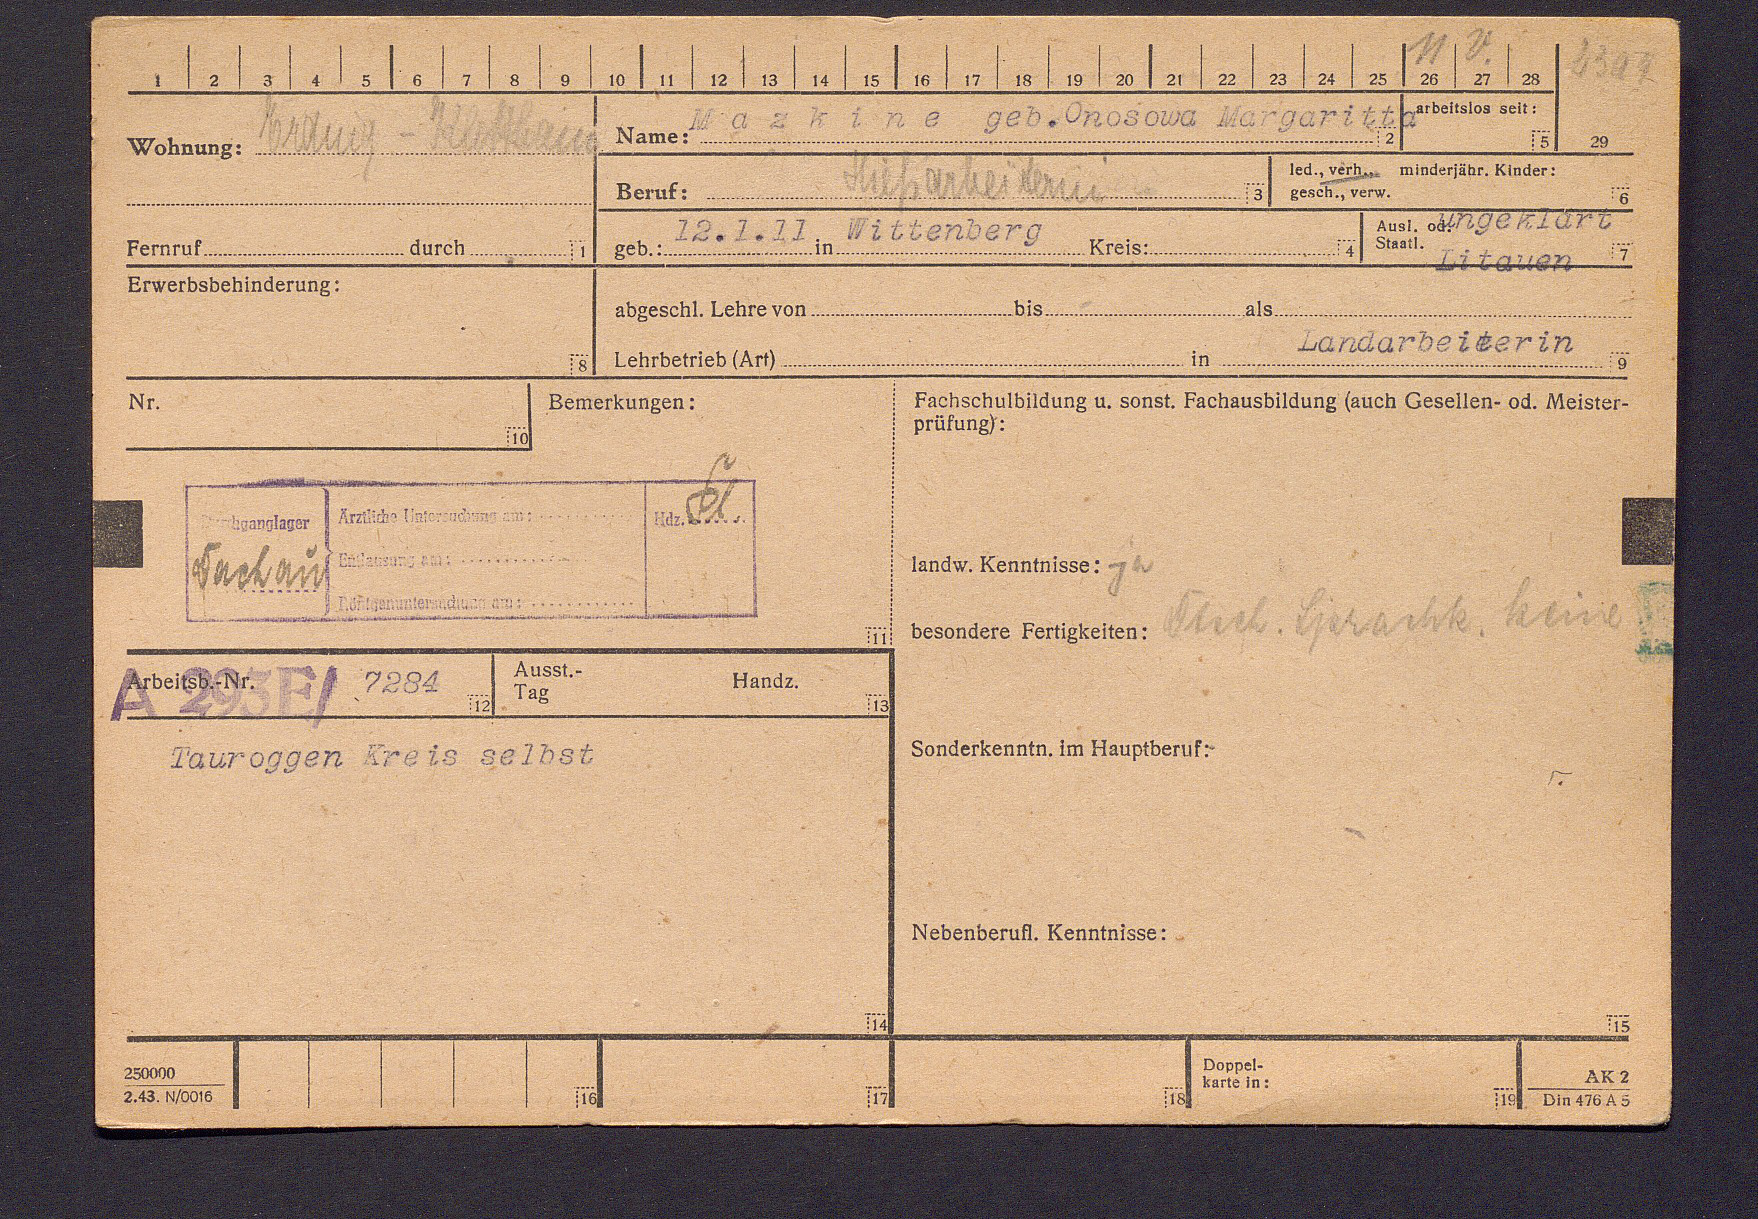 1 2 3 4 5 6 7 8 9 10 11 12 13 14 15 16 17 18 19 20 21 22 23 24 25 26 27 28
Wohnung: Erding -
Name: Mazkine geb. Onosowa Margaritta 2
arbeitslos seit: 5
29
Beruf: 3
led., verh., minderjähr. Kinder:
gesch., verw. 6
Fernruf durch 1
geb.: 12.1.11 in Wittenberg Kreis: 4
Ausl. od. ungeklärt
Staatl. Litauen 7
Erwerbsbehinderung:
8
abgeschl. Lehre von bis als
Landarbeiterin
Lehrbetrieb (Art) in 9
Nr.
10
Bemerkungen:
Durchganglager
Dachau
Ärztliche Untersuchung am:
Entlausung am:
Röntgenuntersuchung am:
Hdz.
11
Fachschulbildung u. sonst. Fachausbildung (auch Gesellen- od. Meister-
prüfung):
landw. Kenntnisse: ja
besondere Fertigkeiten: Dtsch. Sprachk. keine
Arbeitsb.-Nr. A 293E/ 7284 12
Ausst.-
Tag
Handz. 13
Tauroggen Kreis selbst
14
Sonderkenntn. im Hauptberuf:
Nebenberufl. Kenntnisse:
15
250000
2.43. N/0016
16
17
18
Doppel-
karte in:
19
AK 2
Din 476 A 5